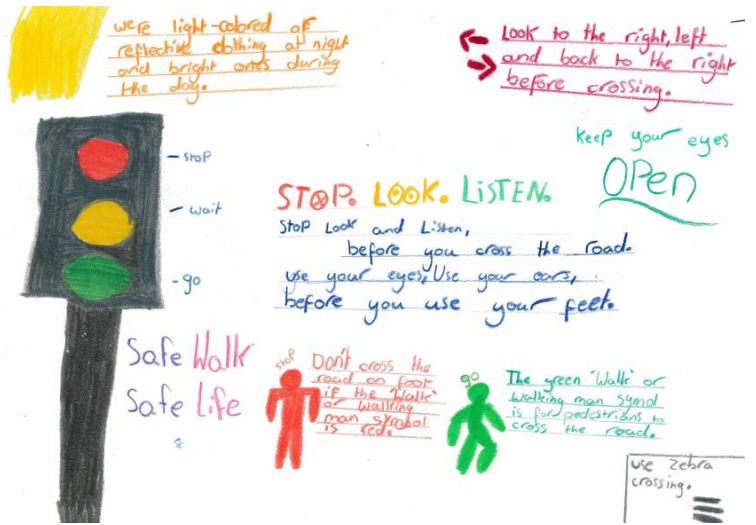 were light-colored of
reflective clothing at night
and bright ones during
the day.
Look to the right, left
and back to the right
before crossing.
keep your eyes
OPen
- stop
- wait
- go
STOP. LOOK. LiSTEN.
Stop Look and Listen,
before you cross the road.
use your eyes, Use your ears,
before you use your feet.
Safe Walk
Safe Life
stop
Don't cross the
road on foot
if the 'Walk'
or walking
man symbol
is red.
go
The green 'Walk' or
walking man symol
is for pedestrians to
cross the road.
use zebra
crossing.